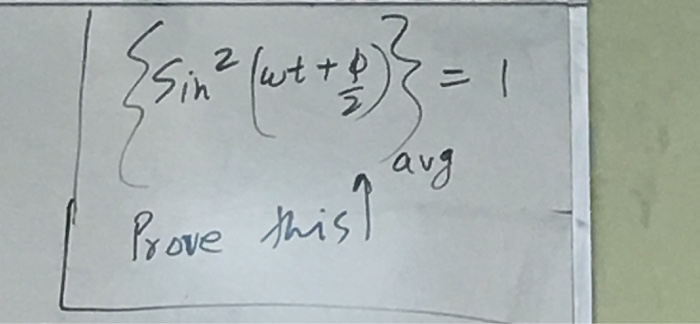 {Sin²(ωt + ϕ/2)}avg = 1
Prove this↑